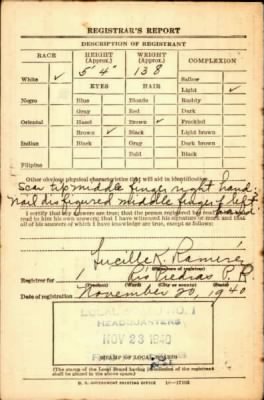 REGISTRAR'S REPORT
DESCRIPTION OF REGISTRANT
RACE HEIGHT (Approx.) WEIGHT (Approx.) COMPLEXION
White ✓ 5' 4" 138 Sallow
EYES HAIR Light ✓
Negro Blue Blonde Ruddy
Gray Red Dark
Oriental Hazel Brown ✓ Freckled
Brown ✓ Black Light brown
Indian Black Gray Dark brown
Bald Black
Filipino
Other obvious physical characteristics that will aid in identification
Scar tip middle finger right hand.
Nail disfigured middle finger left
hand
I certify that my answers are true; that the person registered has read or has had
read to him his own answers; that I have witnessed his signature or mark and that
all of his answers of which I have knowledge are true, except as follows:
Lucille K. Ramirez
(Signature of registrar)
Registrar for 1 Rio Piedras P.R.
(Precinct) (Ward) (City or county) (State)
Date of registration November 20, 1940
LOCAL BOARD NO. 1
HEADQUARTERS
NOV 23 1940
(STAMP OF LOCAL BOARD)
(The stamp of the Local Board having jurisdiction of the registrant
shall be placed in the above space)
U. S. GOVERNMENT PRINTING OFFICE